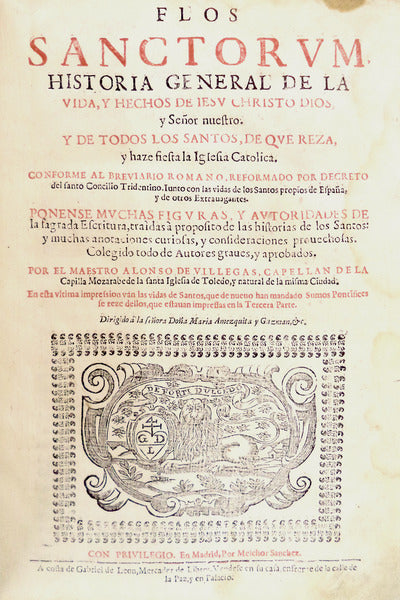 FLOS
SANCTORVM,
HISTORIA GENERAL DE LA
VIDA, Y HECHOS DE IESV CHRISTO DIOS,
y Señor nuestro.
Y DE TODOS LOS SANTOS, DE QVE REZA,
y haze fiesta la Iglesia Catolica.
CONFORME AL BREVIARIO ROMANO, REFORMADO POR DECRETO
del santo Concilio Tridentino. Iunto con las vidas de los Santos propios de España,
y de otros Extrauagantes.
PONENSE MVCHAS FIGVRAS, Y AVTORIDADES DE
la sagrada Escritura, traidas à proposito de las historias de los Santos:
y muchas anotaciones curiosas, y consideraciones prouechosas.
Colegido todo de Autores graues, y aprobados.
POR EL MAESTRO ALONSO DE VILLEGAS, CAPELLAN DE LA
Capilla Mozarabe de la santa Iglesia de Toledo, y natural de la misma Ciudad.
En esta vltima impression van las vidas de Santos, que de nueuo han mandado Sumos Pontifices
se reze dellos, que estauan impressas en la Tercera Parte.
Dirigido à la señora Doña Maria Amezquita y Guzman, &c.
DE FORTI DULCEDO
G D
L
CON PRIVILEGIO. En Madrid, Por Melchor Sanchez.
A costa de Gabriel de Leon, Mercader de Libros. Vendese en su casa, enfrente de la calle de
la Paz, y en Palacio.